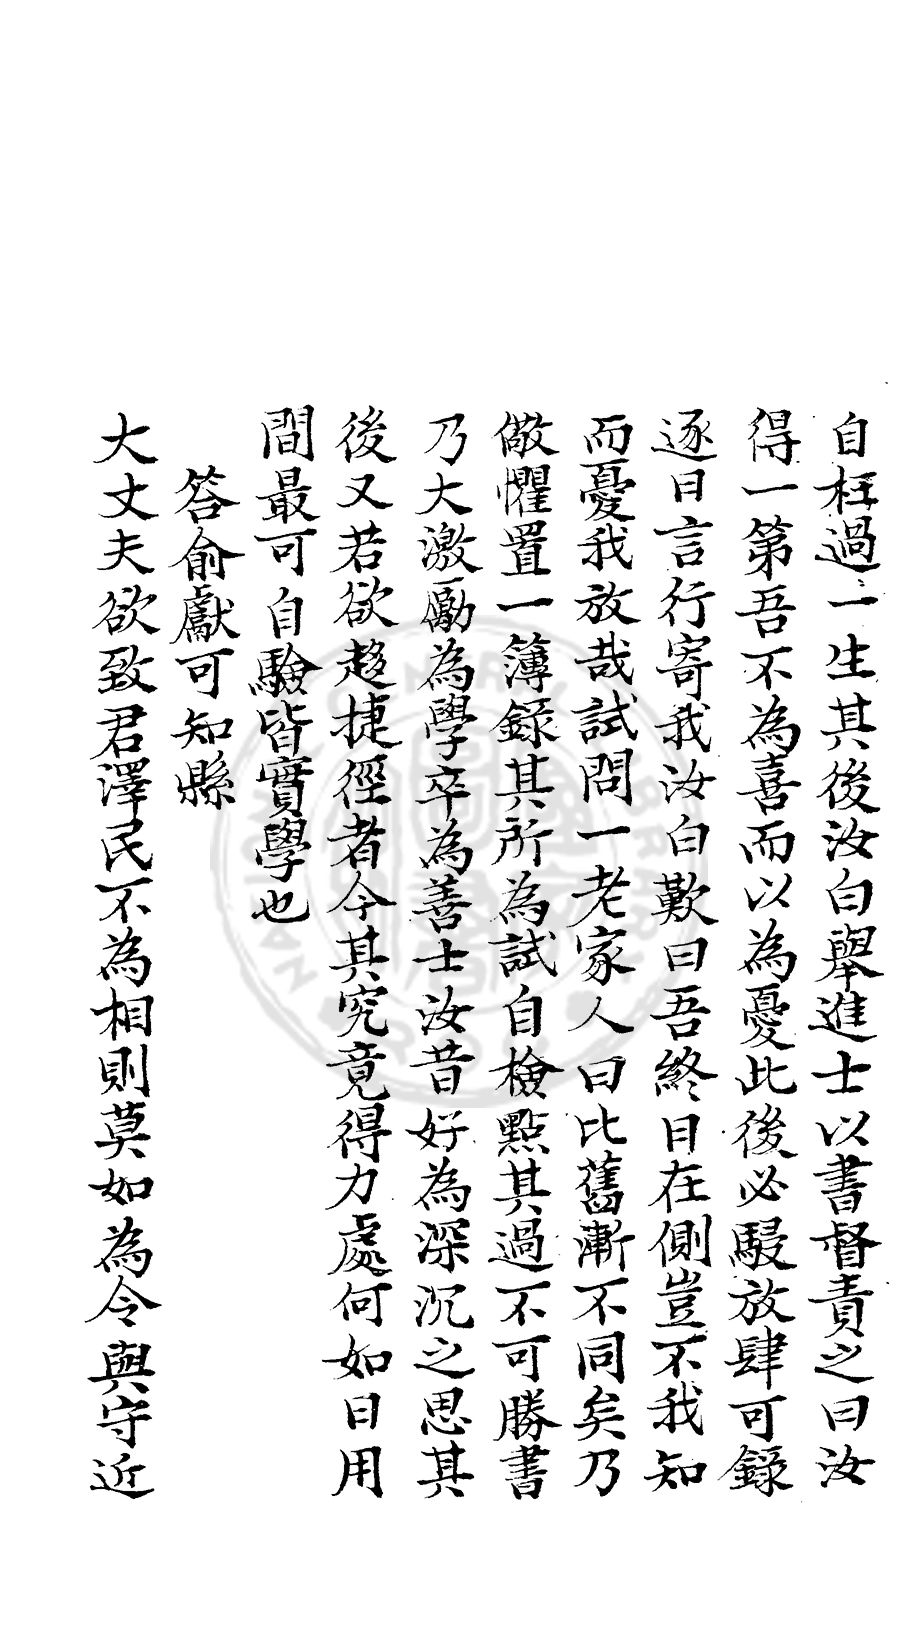 自枉過一生其後汝白舉進士以書督責之曰汝
得一第吾不為喜而以為憂此後必駸放肆可錄
逐日言行寄我汝白歎曰吾終日在側豈不我知
而憂我放哉試問一老家人曰比舊漸不同矣乃
儆懼置一簿錄其所為試自檢點其過不可勝書
乃大激勵為學卒為善士汝昔好為深沉之思其
後又若欲趍捷徑者今其究竟得力處何如日用
間最可自驗皆實學也
答俞獻可知縣
大丈夫欲致君澤民不為相則莫如為令與守近